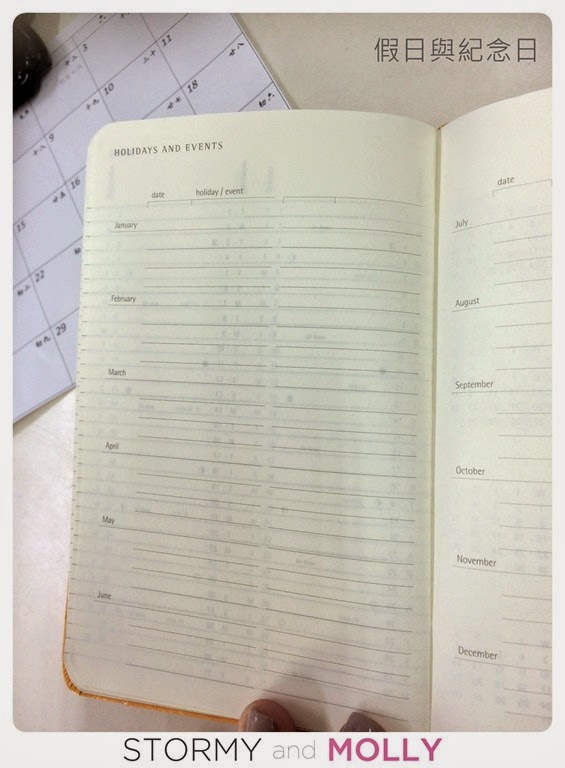 假日與紀念日
3
10
11
18
9
16
15
22
29
HOLIDAYS AND EVENTS
date holiday / event
January
February
March
April
May
June
date
July
August
September
October
November
December
STORMY and MOLLY